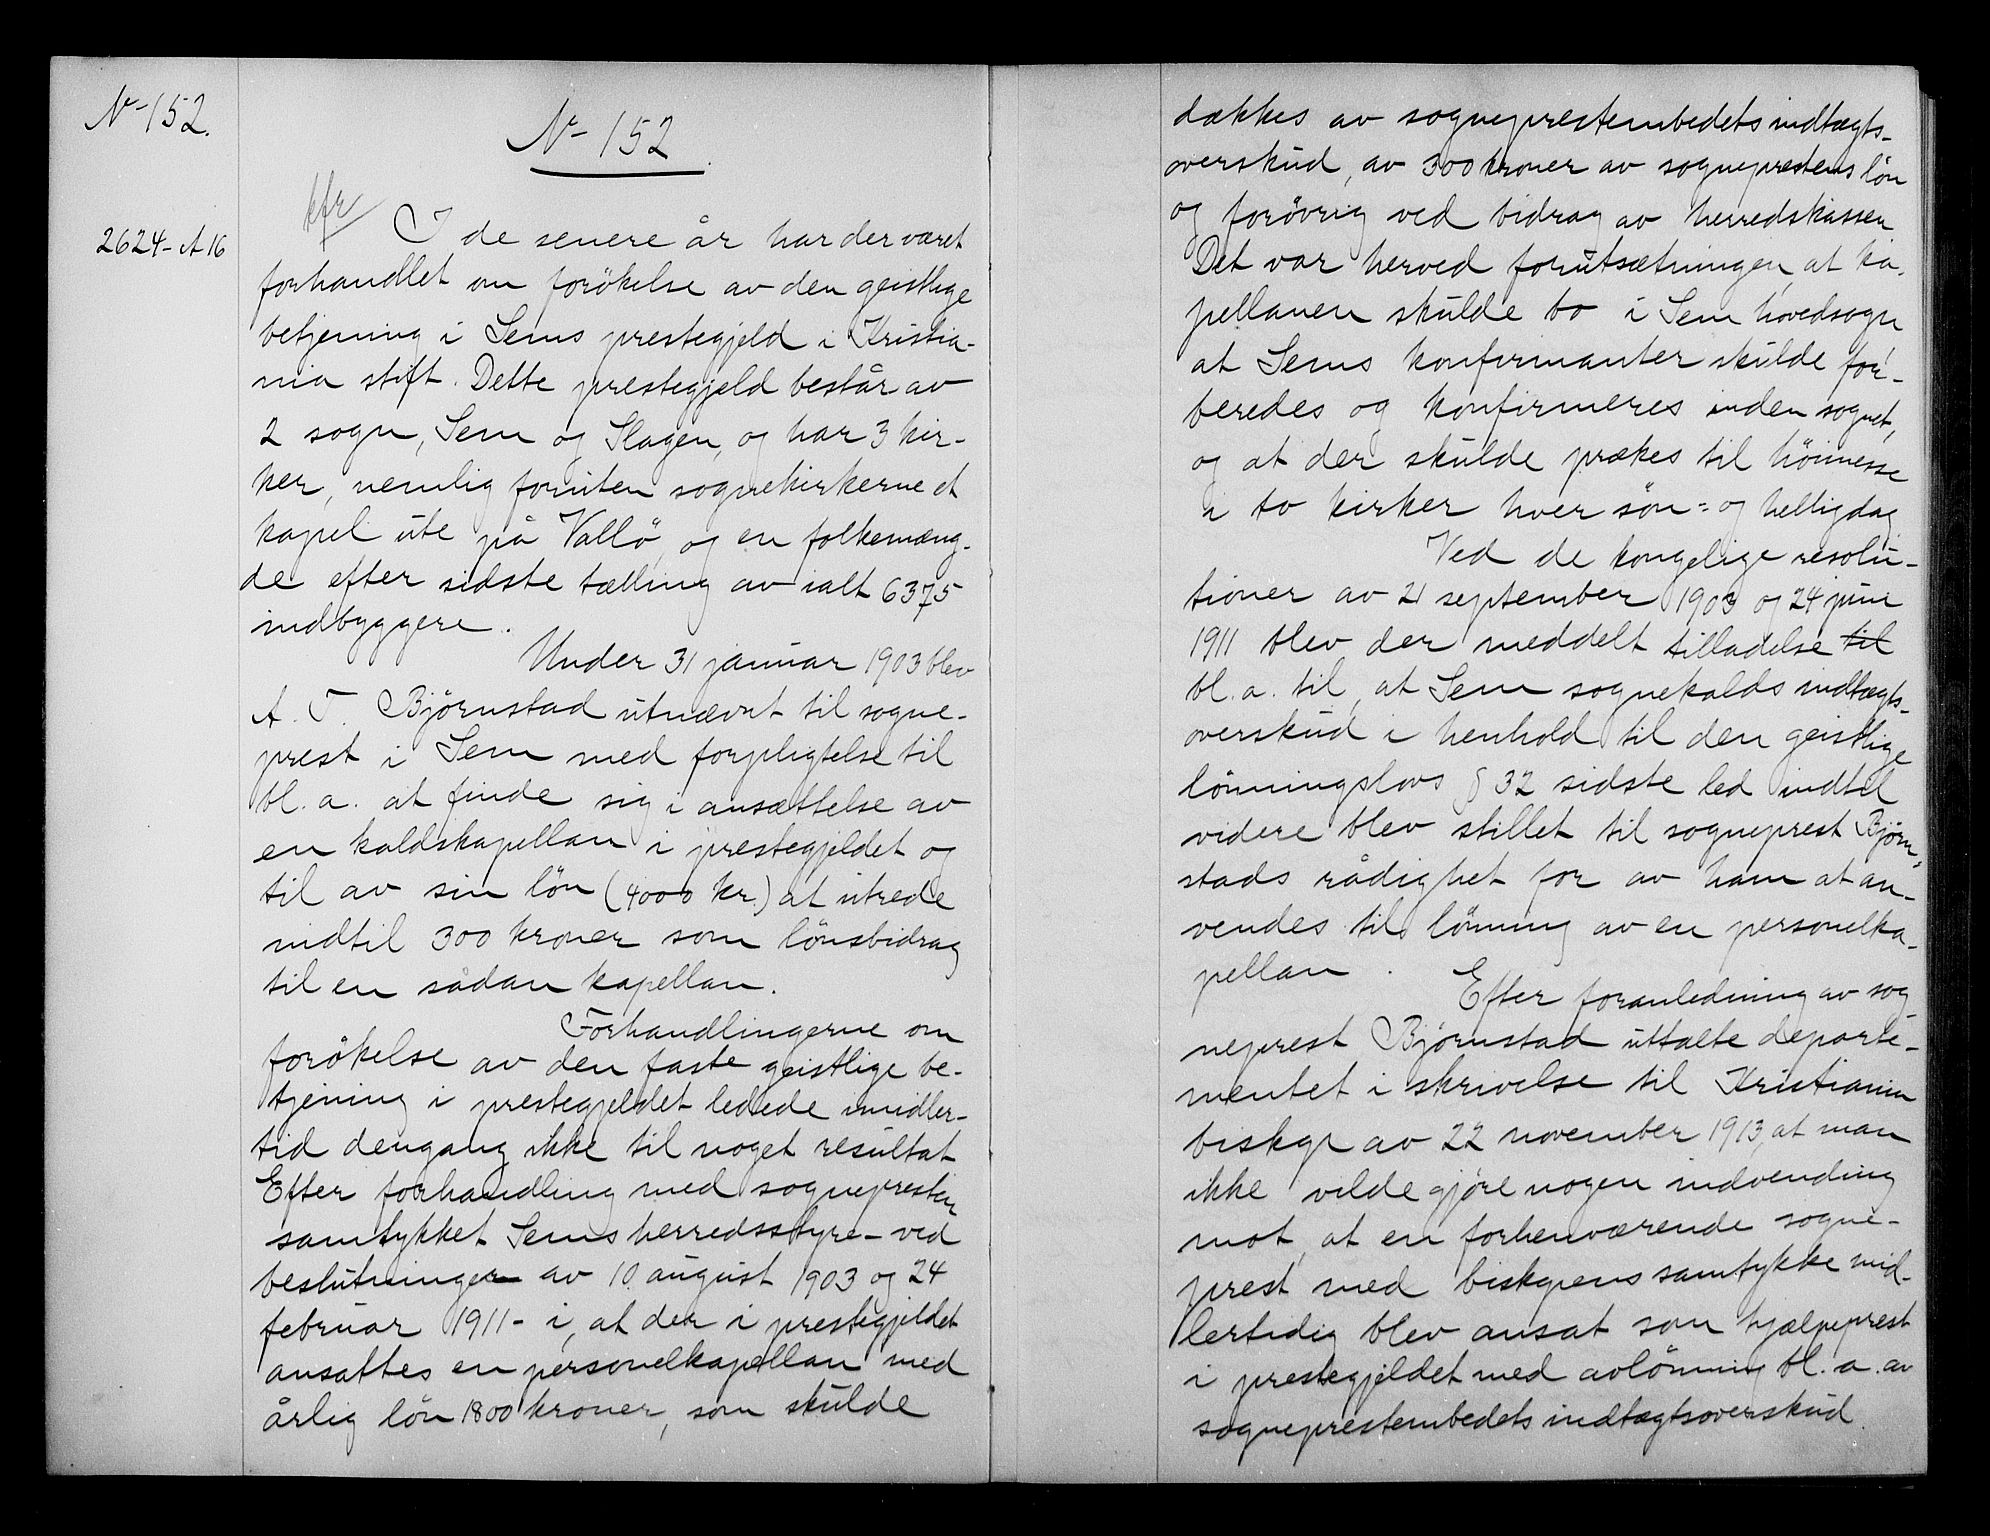 No 152.
No 152.
kfr
2624-A16
I de senere år har der været
forhandlet om forökelse av den geistlige
betjening i Sems prestegjeld i Kristia-
nia stift. Dette prestegjeld består av
2 sogn, Sem og Slagen, og har 3 kir-
ker, nemlig foruten sognekirkerne et
kapel ute på Vallö, og en folkemæng-
de efter sidste tælling av ialt 6375
indbyggere.
Under 31 januar 1903 blev
A. T. Björnstad utnævnt til sogne-
prest i Sem med forpligtelse til
bl. a. at finde sig i ansættelse av
en kaldskapellan i prestegjeldet og
til av sin lön (4000 kr.) at utrede
indtil 300 kroner som lönsbidrag
til en sådan kapellan.
Forhandlingerne om
forökelse av den faste geistlige be-
tjening i prestegjeldet ledede imidler-
tid dengang ikke til noget resultat
Efter forhandling med sognepresten
samtykket Sems herredsstyre - ved
beslutninger av 10 august 1903 og 24
februar 1911 - i, at der i prestegjeldet
ansattes en personelkapellan med
årlig lön 1800 kroner, som skulde
dækkes av sogneprestembedets indtægts-
overskud, av 300 kroner av sogneprestens lön
og forövrig ved bidrag av herredskassen
Det var herved forutsætningen, at ka-
pellanen skulde bo i Sem hovedsogn,
at Sems konfirmanter skulde for-
beredes og konfirmeres inden sognet,
og at der skulde prækes til höimesse
i to kirker hver sön- og helligdag.
Ved de kongelige resolu-
tioner av 21 september 1903 og 24 juni
1911 blev der meddelt tilladelse til
bl. a. til, at Sem sognekalds indtægts-
overskud i henhold til den geistlige
lönningslovs § 32 sidste led indtil
videre blev stillet til sogneprest Björn-
stads rådighet for av ham at an-
vendes til lönning av en personelka-
pellan.
Efter foranledning av sog
neprest Björnstad uttalte departe-
mentet i skrivelse til Kristiania
biskop av 22 november 1913, at man
ikke vilde gjöre nogen indvending
mot, at en forhenværende sogne-
prest med biskopens samtykke mid-
lertidig blev ansat som hjælpeprest
i prestegjeldet med avlönning bl. a. av
sogneprestembedets indtægtsoverskud